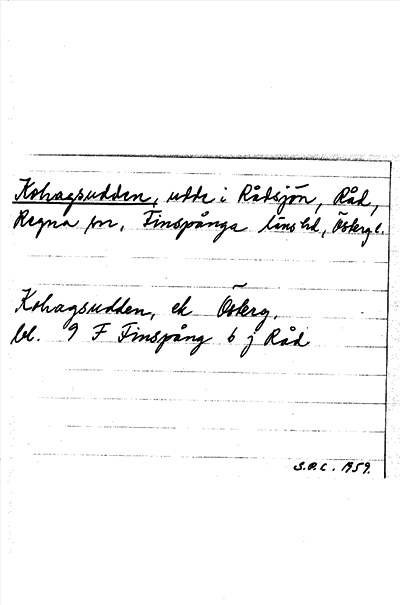 Kohagsudden, udde i Rådsjön, Råd,
Regna sn, Finspånga läns hd, Österg l.
Kohagsudden, ek Österg,
bl. 9 F Finspång 6 j Råd
S.P.C. 1959.